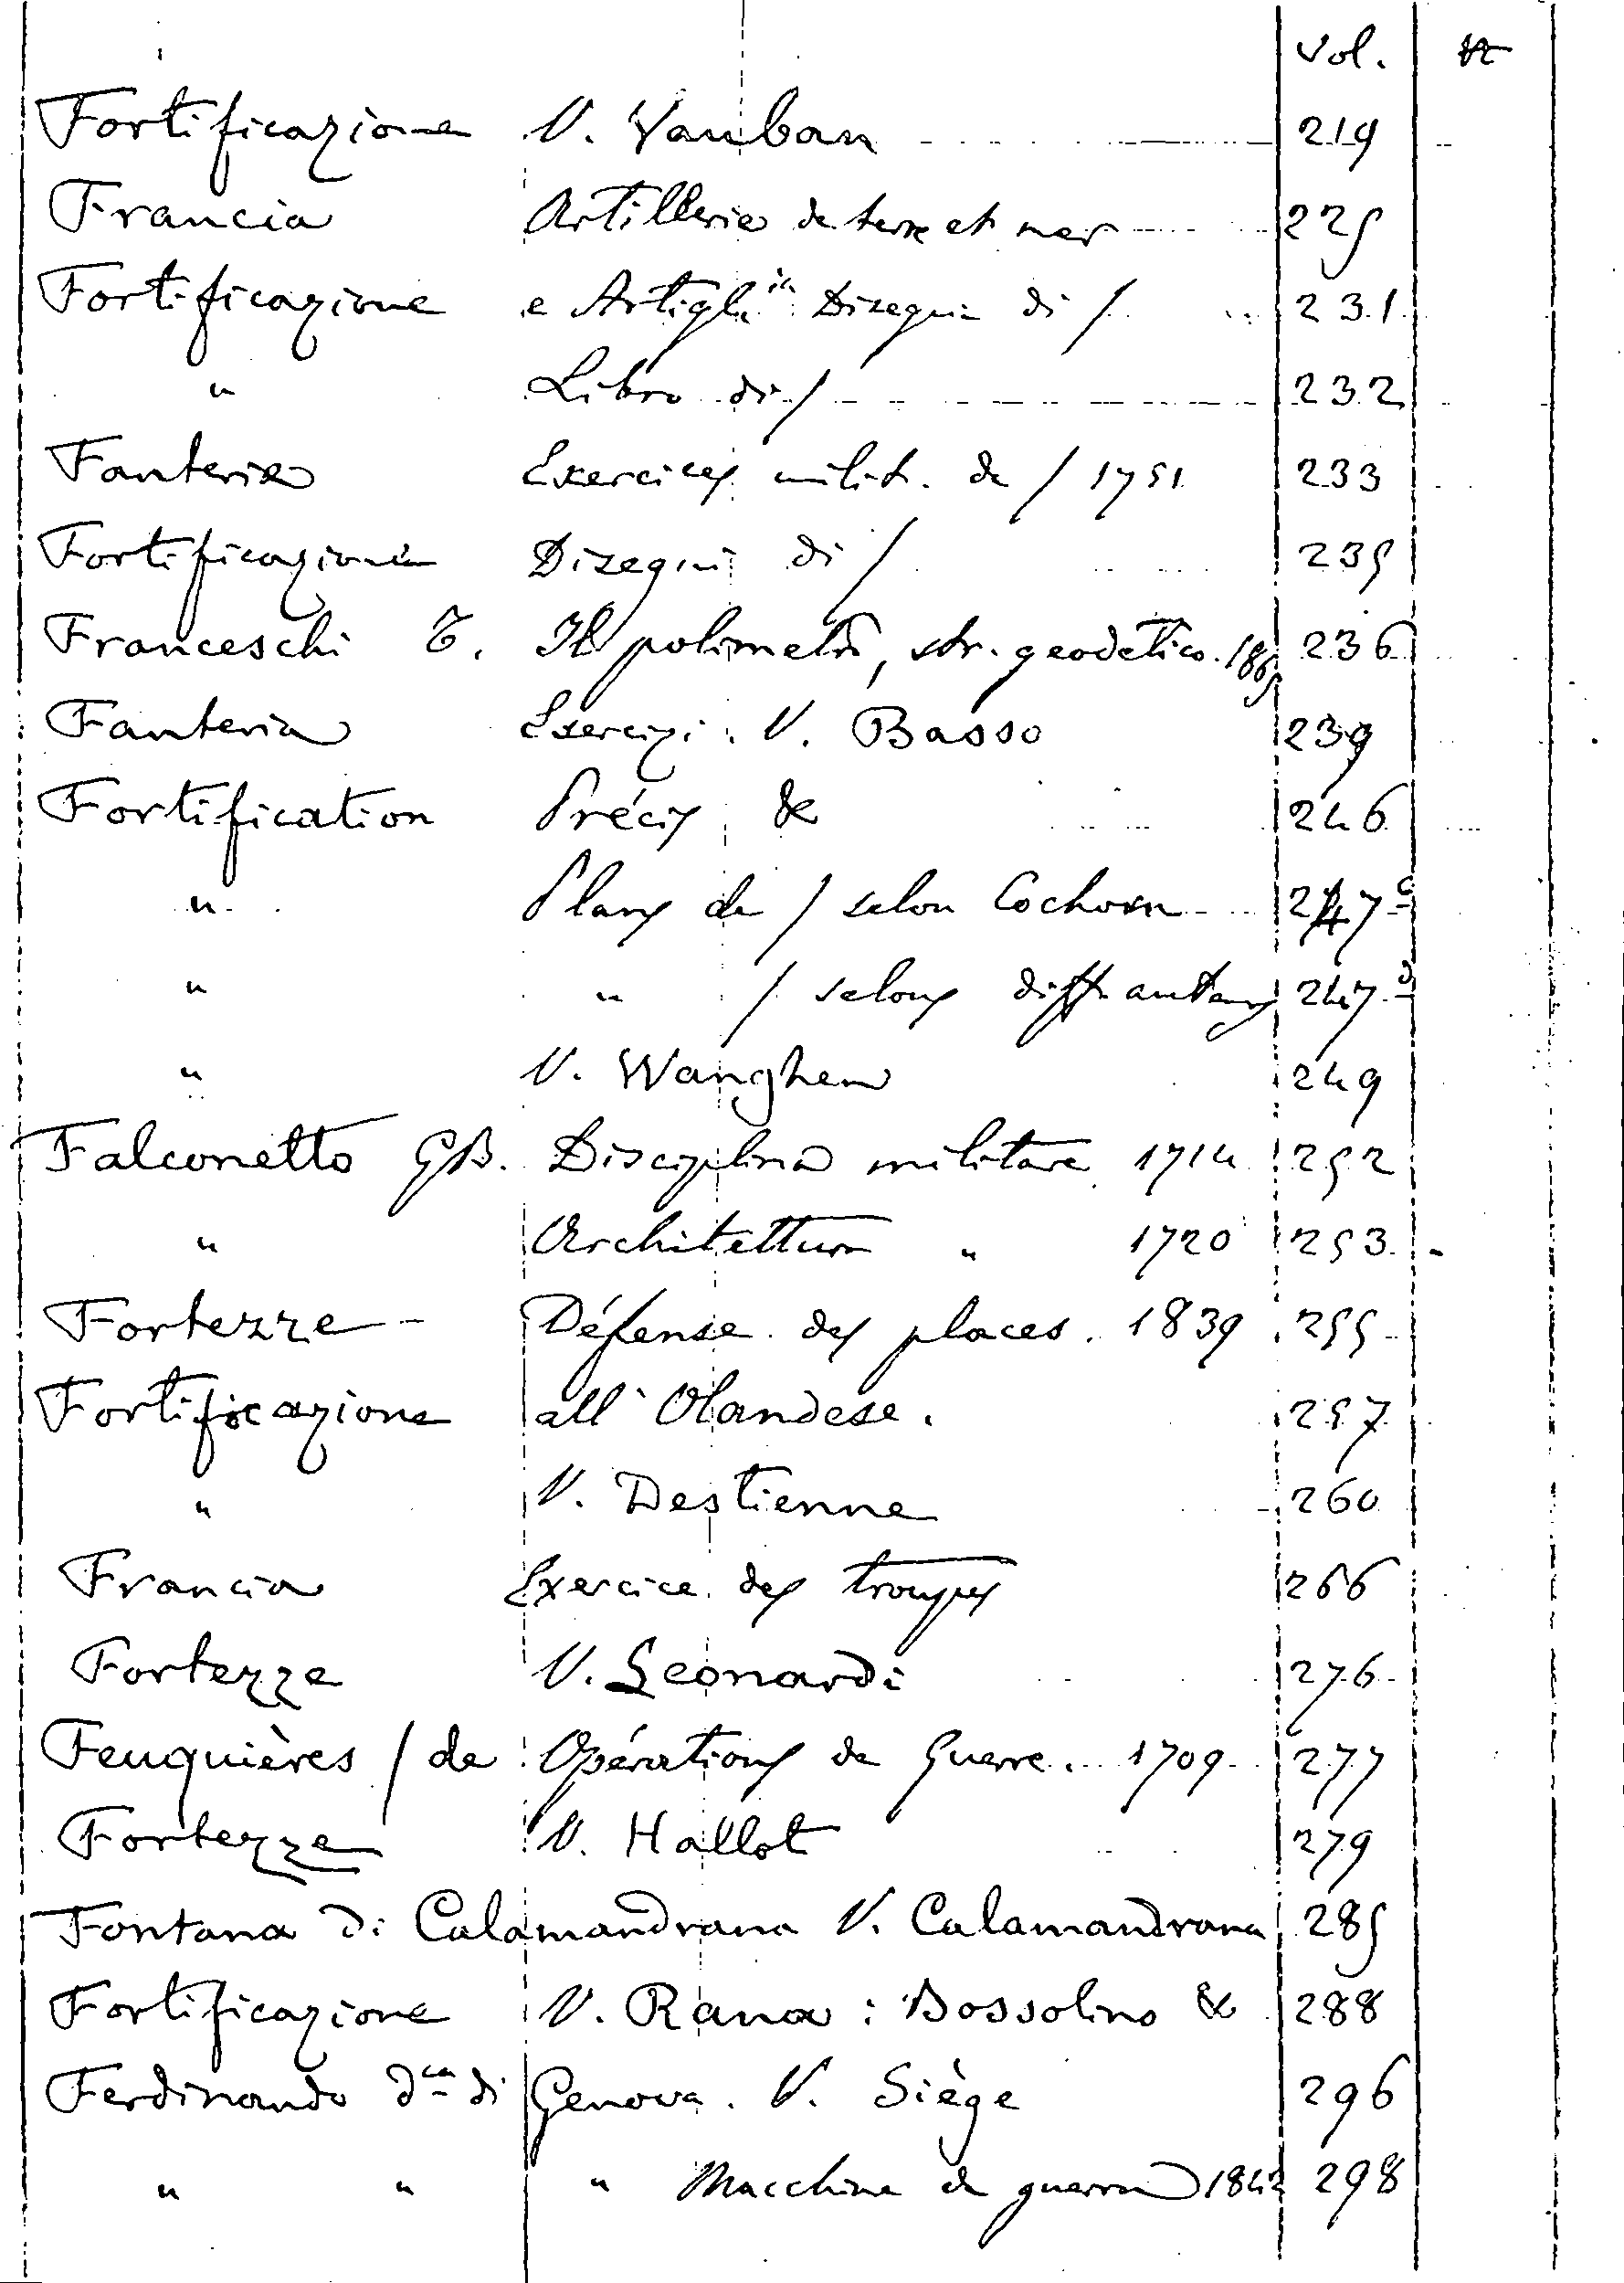 Vol. n
Fortificazione V. Vauban 219
Francia Artillerie de terre et mer 225
Fortificazione e Artigl.ia Disegni di / 231
" Libro di / 232
Fanteria Exercices milit. de / 1751 233
Fortificazione Disegni di / 235
Franceschi T. Il polimetro, str. geodetico. 1865 236
Fanteria Esercizi. V. Basso 239
Fortification Précis de 246
" Plans de / selon Cochorn 247 c
" " / selons diffr auteurs 247 d
" V. Wanghen 249
Falconetto GB. Disciplina militare 1714 252
" Architettura " 1720 253
Fortezze Défense des places. 1839 255
Fortificazione all'Olandese. 257
" V. Destienne 260
Francia Exercice des troupes 266
Fortezze V. Leonardi 276
Feuquières / de Opérations de Guerre. 1709 277
Fortezze V. Hallot 279
Fontana di Calamandrana V. Calamandrana 285
Fortificazione V. Rana: Bossolino & 288
Ferdinando dca di Genova. V. Siège 296
" " " Macchine da guerra 1842 298